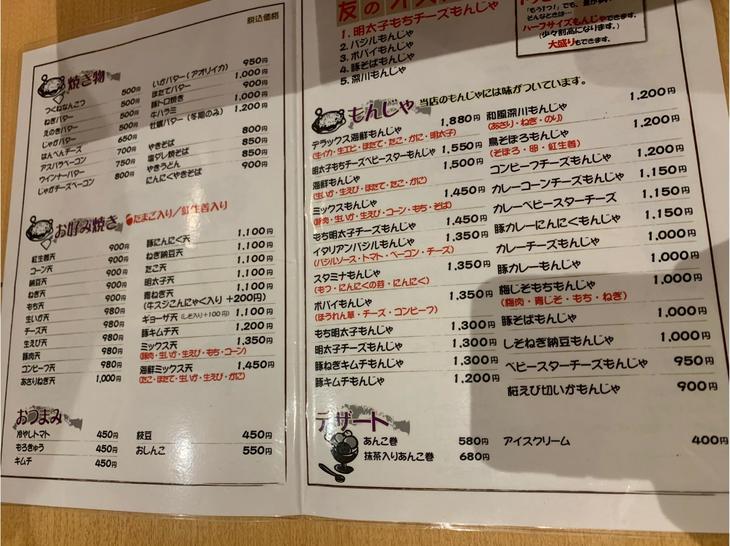 税込価格
焼き物
つくねなんこつ 500円
ねぎバター 500円
えのきバター 500円
じゃがバター 650円
はんぺんチーズ 700円
アスパラベーコン 750円
ウインナーバター 800円
じゃがチーズベーコン 900円
いかバター(アオリイカ) 950円
ほたてバター 900円
豚トロ焼き 1,000円
牛ハラミ 1,000円
牡蠣バター(冬期のみ) 1,200円
やきそば 800円
塩ダレ焼そば 850円
やきうどん 850円
にんにくやきそば 900円
お好み焼き たまご入り/紅生姜入り
紅生姜天 900円
コーン天 900円
納豆天 900円
ねぎ天 900円
もち天 900円
生いか天 980円
チーズ天 980円
生えび天 980円
豚肉天 980円
コンビーフ天 980円
あさりねぎ天 1,000円
豚にんにく天 1,100円
ねぎ納豆天 1,100円
たこ天 1,100円
明太子天 1,100円
青ねぎ天 1,100円
(牛スジこんにゃく入り +200円)
ギョーザ天 (しそ入り+100円) 1,100円
豚キムチ天 1,200円
ミックス天 1,350円
(豚肉・生いか・生えび・もち・コーン)
海鮮ミックス天 1,450円
(たこ・ほたて・生いか・生えび・かに)
おつまみ
冷やしトマト 450円
もろきゅう 450円
キムチ 450円
枝豆 450円
おしんこ 550円
1.明太子もちチーズもんじゃ
2.バジルもんじゃ
3.ポパイもんじゃ
4.豚そばもんじゃ
5.深川もんじゃ
そんなときは…
ハーフサイズもんじゃできます。
(少々割高になります。)
大盛りもできます。
もんじゃ 当店のもんじゃには味がついています。
デラックス海鮮もんじゃ 1,880円
(生イカ・生エビ・ほたて・たこ・かに・明太子)
明太子もちチーズベビースターもんじゃ 1,550円
海鮮もんじゃ 1,500円
(生いか・生えび・ほたて・たこ・かに)
ミックスもんじゃ 1,450円
(豚肉・生いか・生えび・コーン・もち・そば)
もち明太子チーズもんじゃ 1,450円
イタリアンバジルもんじゃ 1,350円
(バジルソース・トマト・ベーコン・チーズ)
スタミナもんじゃ 1,350円
(もつ・にんにくの芽・にんにく)
ポパイもんじゃ 1,350円
(ほうれん草・チーズ・コンビーフ)
もち明太子もんじゃ 1,300円
明太子チーズもんじゃ 1,300円
豚ねぎキムチもんじゃ 1,300円
豚キムチもんじゃ 1,200円
和風深川もんじゃ 1,200円
(あさり・ねぎ・のり)
鳥そぼろもんじゃ 1,200円
(そぼろ・卵・紅生姜)
コンビーフチーズもんじゃ 1,200円
カレーコーンチーズもんじゃ 1,150円
カレーベビースターチーズ 1,150円
豚カレーにんにくもんじゃ 1,150円
カレーチーズもんじゃ 1,000円
豚カレーもんじゃ 1,000円
梅しそもちもんじゃ 1,000円
(梅肉・青じそ・もち・ねぎ)
豚そばもんじゃ 1,000円
しそねぎ納豆もんじゃ 1,000円
ベビースターチーズもんじゃ 950円
桜えび切いかもんじゃ 900円
デザート
あんこ巻 580円
抹茶入りあんこ巻 680円
アイスクリーム 400円